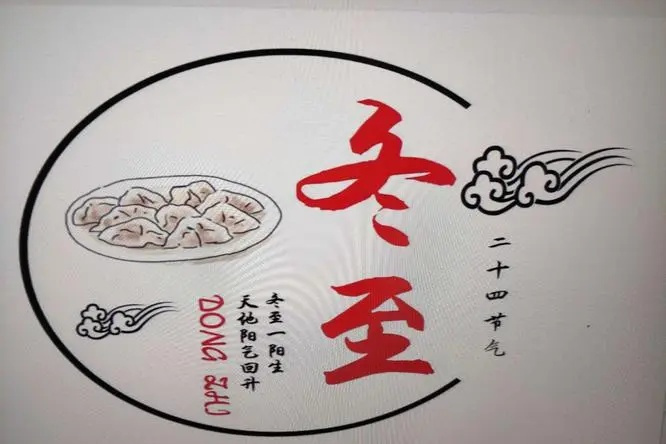 二十四节气
冬至
冬至一阳生
天地阳气回升
DONG ZHI